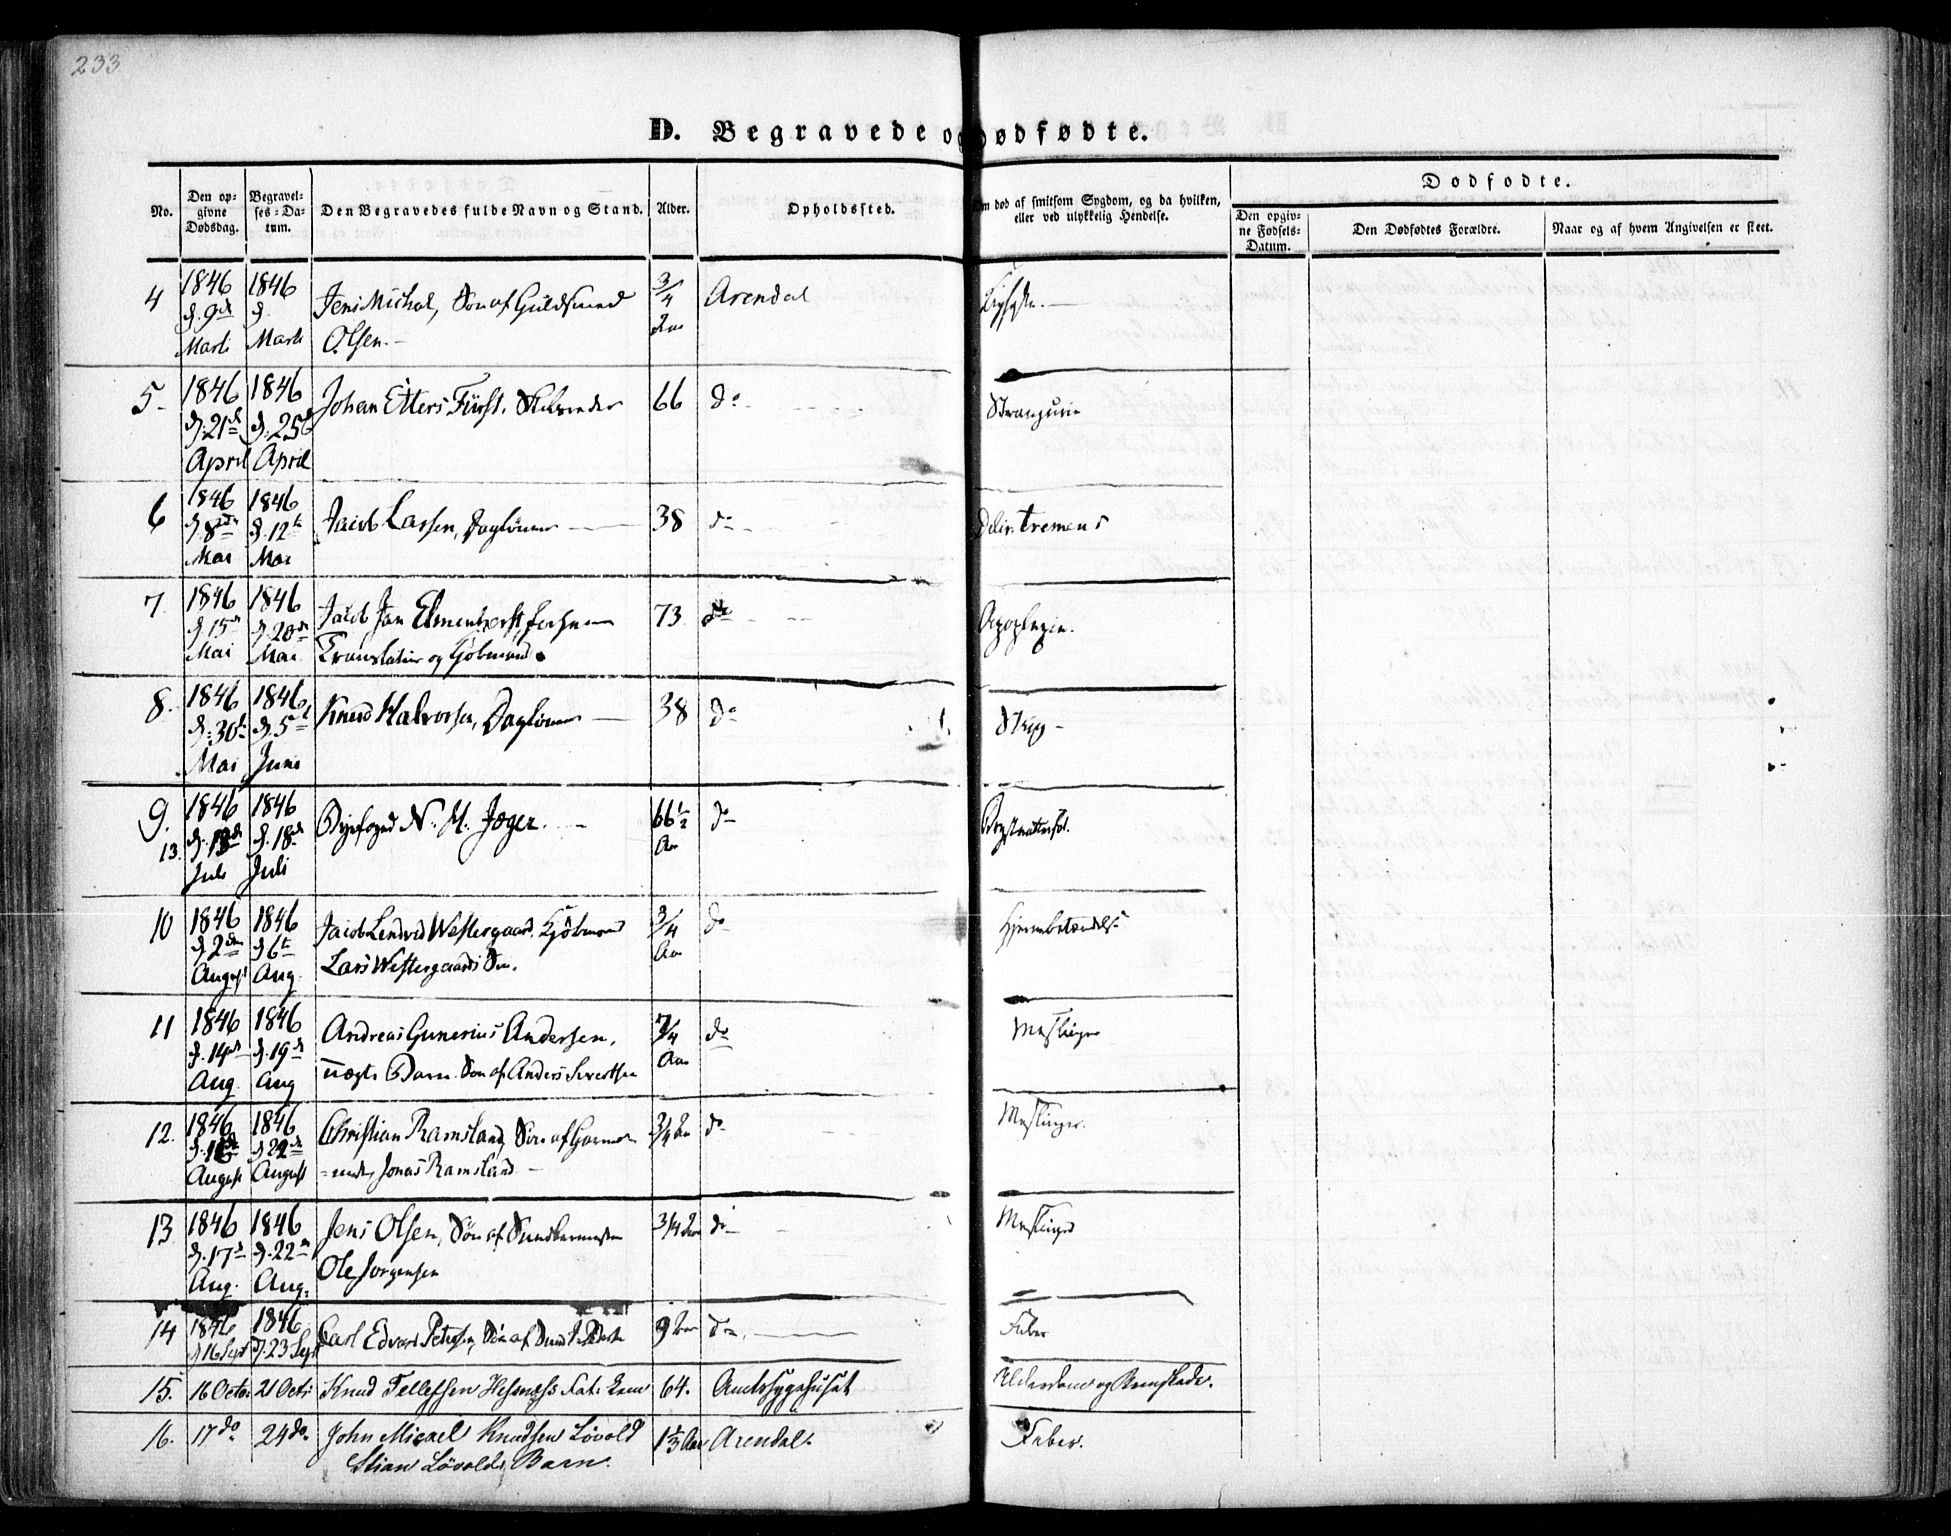 233
D. Begravede og Dødfødte.
No.
Den opgivne Dødsdag.
Begravelses-Datum.
Den Begravedes fulde Navn og Stand.
Alder.
Opholdssted.
Om død af smitsom Sygdom, og da hvilken, eller ved ulykkelig Hendelse.
Dødfødte.
Den opgivne Fødsels-Datum.
Den Dødfødtes Forældre.
Naar og af hvem Angivelsen er skeet.
4 1846 d. 9de Marti 1846 d. Marti Jens Michal, Søn af Guldsmed 3/4 Aar Arendal
Olsen.
5 1846 d. 21de April 1846 d. 25de April Johan Etters Fürst. 66 do Strangurie
6 1846 d. 8de Mai 1846 d. 12te Mai Jacob Larsen, Dagløner 38 do Delir. tremens
7. 1846 d. 15de Mai 1846 d. 20de Mai Jacob Jan Elmenhorst, 73 do Apoplexie.
Translatør og Kjøbmand.
8. 1846 d. 30te Mai 1846 d. 5te Juni Knud Halvorsen, Dagløner 38 do
9. 1846 d. 13. Juli 1846 d. 18de Juli Byefoged N. M. Jæger. 66 1/2 Aar do
10 1846 d. 2den August 1846 d. 6te Aug. Jacob Westergaard. Kjøbmand 3/4 Aar do Hjernebetændelse
Lars Westergaards Søn.
11 1846 d. 14de Aug. 1846 d. 19de Aug Andreas Gunerius Andersen, 7/4 Aar do Meslinger
uægte Barn. Søn af Anders Sivertsen
12. 1846 August 1846 d. 22de August Christian Ramsland, Søn af 3/4 Aar do Meslinger.
Jonas Ramsland
13 1846 d. 17de Aug. 1846 d. 22de Aug. Jens Olsen, Søn af 3/4 Aar do Meslinger
Ole Jørgensen
14 1846 d. 16 Sept 1846 d. 23 Sept Carl Edvard Petersen, Søn af 9 Aar do Feber
15. 16 Octo: 21 Octo: Knud Tellefsen Hesnæss Fat: Lem 64. Amtssygehuset Alderdom og Beenskade.
16. 17 do 24 do John Micael Knudsen Løvold 1 1/3 Aar Arendal. Feber.
Stian Løvolds Barn.